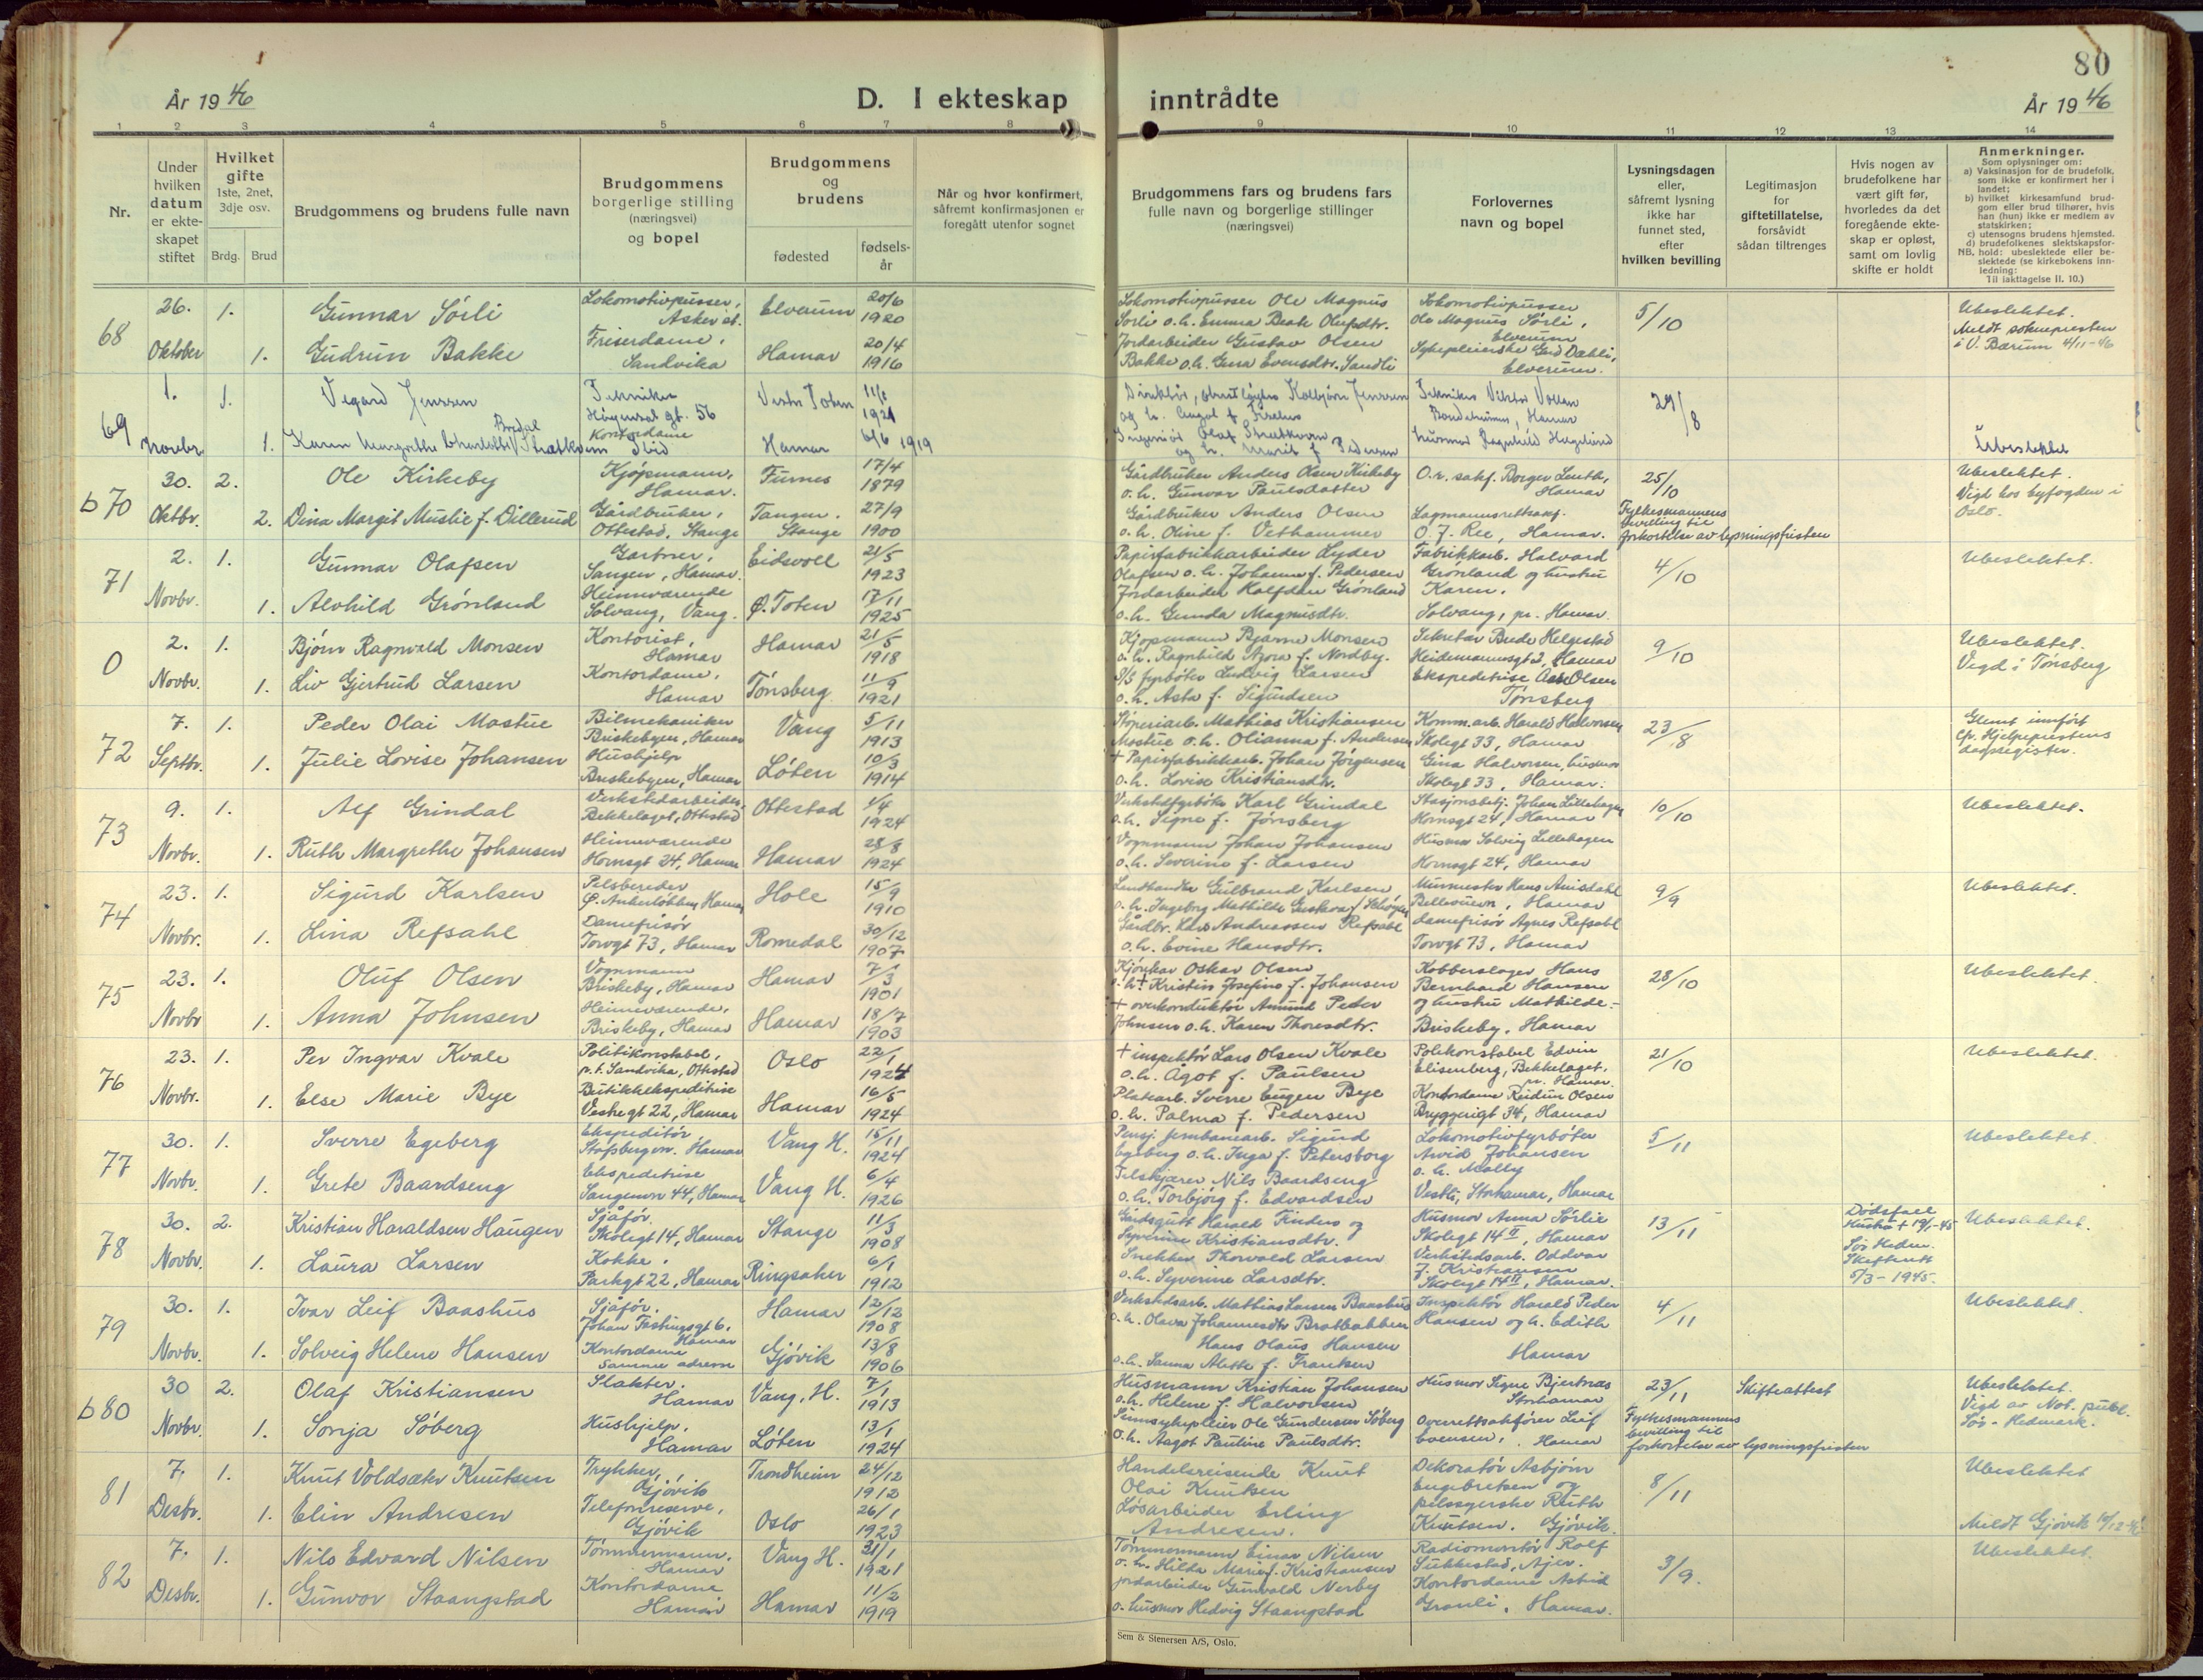 80
År 1946
D. I ekteskap inntrådte
År 1946
1 2 3 4 5 6 7 8 9 10 11 12 13 14
Nr.
Under hvilken datum er ekteskapet stiftet
Hvilket gifte 1ste, 2net, 3dje osv.
Brdg. Brud
Brudgommens og brudens fulle navn
Brudgommens borgerlige stilling (næringsvei) og bopel
Brudgommens og brudens
fødested
fødselsår
Når og hvor konfirmert, såfremt konfirmasjonen er foregått utenfor sognet
Brudgommens fars og brudens fars fulle navn og borgerlige stillinger (næringsvei)
Forlovernes navn og bopel
Lysningsdagen eller, såfremt lysning ikke har funnet sted, efter hvilken bevilling
Legitimasjon for giftetillatelse, forsåvidt sådan tiltrenges
Hvis nogen av brudefolkene har vært gift før, hvorledes da det foregående ekteskap er opløst, samt om lovlig skifte er holdt
Anmerkninger.
Som oplysninger om:
a) Vaksinasjon for de brudefolk, som ikke er konfirmert her i landet;
b) hvilket kirkesamfund brudgom eller brud tilhører, hvis han (hun) ikke er medlem av statskirken;
c) utensogns brudens hjemsted.
d) brudefolkenes slektskapsforhold: ubeslektede eller beslektede (se kirkebokens innledning:
NB. Til iakttagelse II. 10.)
68
26. Oktober 1. Gunnar Sörli Lokomotivpusser, Asker st. Elverum 20/6 1920
1. Gudrun Bakke Friserdame, Sandvika Hamar 20/4 1916
Lokomotivpusser Ole Magnus
Sörli o.h. Emma Beate Olufsdtr.
Jordarbeider Gustav Olsen
Bakke o.h. Gina Evensdtr. Sandli
Lokomotivpusser
Ole Magnus Sörli,
Elverum
Sykepleierske Gerd Dæhli,
Elverum.
5/10
Ubeslektet.
Meldt soknepresten
i V. Bærum 4/11-46
69
1. Novbr. 1. Vegard Jenssen Tekniker Høyensal gt. 56 Vestre Toten 11/1 1921
1. Karen Margrethe Charlotte Bredal Strætkvern Kontordame Ibid Hamar 6/6 1919
Ingeniör Olaf Strætkvern
og h. Marit f. Pedersen
Hamar
29/8
Ubeslektet
b70
30. Oktbr. 2. Ole Kirkeby Kjöpmann, Hamar. Furnes 17/4 1879
2. Dina Margit Muslie f. Dillerud Gårdbruker, Ottestad, Stange Tangen. Stange 27/9 1900
Gårdbruker Anders Olsen Kirkeby
o.h. Gunvor Paulsdatter
Gårdbruker Anders Olsen
o.h. Oline f. Vethammer
O.r. sakf. Borger Lenth,
Hamar
Lagmannsrettsang.
O. J. Ree, Hamar.
25/10
Fylkesmannens
bevilling til
forkortelse av lysningsfristen
Ubeslektet.
Vigd hos byfogden i
Oslo.
71
2. Novbr. 1. Gunnar Olafsen Gartner, Sangen, Hamar. Eidsvoll 21/5 1923
1. Alvhild Grönland Heimeværende Solvang, Vang. Ø. Toten 17/11 1925
Papirfabrikkarbeider Lyder
Olafsen o.h. Johanne f. Pedersen
Jordarbeider Halfdan Grönland
o.h. Gunda Magnusdtr.
Fabrikkarb. Halvard
Grönland og hustru
Karen.
Solvang, pr. Hamar.
4/10
Ubeslektet.
0
2. Novbr. 1. Björn Ragnvald Monsen Kontorist, Hamar Hamar 21/5 1918
1. Liv Gjertrud Larsen Kontordame, Hamar Tönsberg 11/9 1921
Kjöpmann Bjarne Monsen
o.h. Ragnhild Azora f. Nordby.
D/S fyrböter Ludvig Larsen
o.h. Asta f. Sigurdsen
Sekretær Brede Helgestad
Heidemannsgt 2, Hamar
Ekspeditrise Aase Olsen
Tönsberg
9/10
Ubeslektet.
Vigd i Tönsberg
72
7. Septbr. 1. Peder Olai Mostue Bilmekaniker Briskebyen, Hamar Vang 5/11 1913
1. Julie Lovise Johansen Hushjelp Briskebyen, Hamar Löten 10/3 1914
Støperiarb. Mathias Kristiansen
Mostue o.h. Olianna f. Andersen
+ Papirfabrikkarb. Johan Jörgensen
o.h. Lovise Kristiansdtr.
Komm.arb. Harald Halvorsen
Skolegt 33, Hamar
Gina Halvorsen, husmor
Skolegt 33, Hamar.
23/8
Glemt innført
cfr. Hjelpeprestens
dagsregister.
73
9. Novbr. 1. Alf Grindal Verkstedarbeider, Bekkelaget, Ottestad Ottestad 1/4 1924
1. Ruth Margrethe Johansen Heimeværende Hornsgt 24, Hamar Hamar 28/8 1924
Verkstedfyrböter Karl Grindal
o.h. Signe f. Jönsberg
Vognmann Johan Johansen
o.h. Severine f. Larsen
Stasjonsbetj. Johan Lillehagen
Hornsgt 24, Hamar
Husmor Solveig Lillehagen
Hornsgt 24, Hamar
10/10
Ubeslektet.
74
23. Novbr. 1. Sigurd Karlsen Pelsbereder Ø. Ankerløkken, Hamar Hole 15/9 1910
1. Lina Refsahl Damefrisör Torvgt 73, Hamar Romedal 30/12 1907
Landhandler Gulbrand Karlsen
o.h. Ingeborg Mathilde Gustava f. Schöyen
Gårdbr. Lars Andreassen Refsahl
o.h. Evine Hansdtr.
Murmester Hans Amsdahl
Bellevuevn, Hamar
damefrisör Agnes Refsahl
Torvgt 73, Hamar
9/9
Ubeslektet.
75
23. Novbr 1. Oluf Olsen Vognmann Briskeby, Hamar Hamar 7/3 1901
1. Anna Johnsen Heimeværende, Briskeby, Hamar Hamar 18/7 1903
Kjörekar Oskar Olsen
o.h. + Kristin Josefine f. Johansen
+ overkonduktör Amund Peder
Johnsen o.h. Karen Thoresdtr.
Kobberslager Hans
Bernhard Hansen
og hustru Mathilde-
Briskeby, Hamar
28/10
Ubeslektet.
76
23. Novbr. 1. Per Ingvar Kvale Politikonstabel, p.t. Sandvika, Ottestad Oslo 22/1 1924
1. Else Marie Bye Butikkekspeditrise Vestregt 22, Hamar Hamar 16/5 1924
+ inspektör Lars Olsen Kvale
o.h. Ågot f. Paulsen
Platearb. Sverre Eugen Bye
o.h. Palma f. Pedersen
Polikonstabel Edvin
Elisenberg, Bekkelaget,
pr. Hamar.
Kontordame Reidun Olsen
Bryggerigt 34, Hamar
21/10
Ubeslektet.
77
30. Novbr. 1. Sverre Egeberg Ekspeditör Stafsbergvn. Hamar Vang H. 15/11 1924
1. Grete Baardseng Ekspeditrise Sangenvn 44, Hamar Vang H. 6/4 1926
Pensj. jernbanearb. Sigurd
Egeberg o.h. Inga f. Petersborg
Tilskjærer Nils Baardseng
o.h. Torbjörg f. Edvardsen
Lokomotivfyrböter
Arvid Johansen
o.h. Molly
Vestli, Storhamar, Hamar
5/11
Ubeslektet.
78
30. Novbr. 2. Kristian Haraldsen Haugen Sjåför. Skolegt 14, Hamar Stange 11/3 1908
1. Laura Larsen Kokke. Parkgt 22, Hamar Ringsaker 6/1 1912
Gårdsgutt Harald Finders og
Syverine Kristiansdtr.
Snekker Thorvald Larsen
o.h. Syverine Larsdtr.
Husmor Anna Sörlie
Skolegt 14 II, Hamar
Verkstedsarb. Oddvar
J. Kristiansen
Skolegt 14 II, Hamar.
13/11
Dödsfall
Hustru + 19/1-45
Sör Hedm.
Skifterett
5/3-1945.
Ubeslektet.
79
30. Novbr. 1. Ivar Leif Baashus Sjåför. Johan Fastingsgt 6, Hamar Hamar 12/12 1908
1. Solveig Helene Hansen Kontordame samme adresse Gjövik 13/8 1906
Verkstedsarb. Mathias Larsen Baashus
o.h. Olava Johannesdtr Bratbakken
Hans Olaus Hansen
o.h. Sanna Alette f. Frantsen
Inspektör Harald Peder
Hansen og h. Edith
Hamar
4/11
Ubeslektet.
b80
30 Novbr. 2. Olaf Kristiansen Slakter. Hamar Vang, H. 7/1 1913
1. Sonja Söberg Hushjelp, Hamar Löten 13/1 1924
Husmann Kristian Johansen
o.h. Helene f. Halvorsen
Sinnsykepleier Ole Gundersen Söberg
o.h. Aagot Pauline Paulsdtr.
Husmor Signe Bjertnæs
Storhamar
Overrettssakförer Leif
Evensen, Hamar
23/11
Fylkesmannens
bevilling til
forkortelse av lysningsfristen
Skifteattest
Ubeslektet.
Vigd av Not. publ.
Sör-Hedmark.
81
7. Desbr. 1. Knut Voldsæter Knutsen Trykker, Gjövik Trondheim 24/12 1912
1. Elin Andresen Telefonreserve, Gjövik Oslo 26/1 1923
Handelsreisende Knut
Olai Knutsen
Lösarbeider Erling
Andresen.
Dekoratör Asbjörn
Engebretsen og
pelssyerske Ruth
Knutsen. Gjövik.
8/11
Ubeslektet
Meldt Gjövik
82
7. Desbr. 1. Nils Edvard Nilsen Tömmermann, Hamar Vang H. 31/1 1921
1. Gunvor Staangstad Kontordame Hamar Hamar 11/2 1919
Tömmermann Einar Nilsen
o.h. Hilda Marie f. Kristiansen
jordarbeider Gunvald Nerby
o. husmor Hedvig Staangstad
Radiomontör Rolf
Sukkestad, Ajer.
Kontordame Astrid
Granli, Hamar.
3/9.
Ubeslektet.
Sem & Stenersen A/S, Oslo.